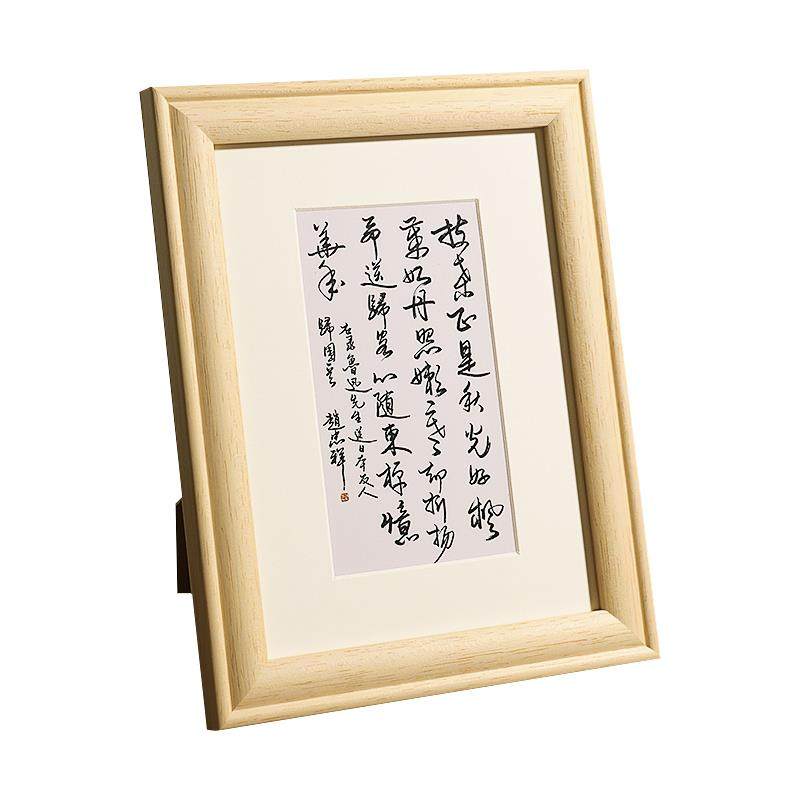 扶桒正是秋光好楓
葉如丹照嫩寒却折杨
送歸客心随東棹憶
華年
右录魯迅先生送日本友人
歸國 趙忠祥